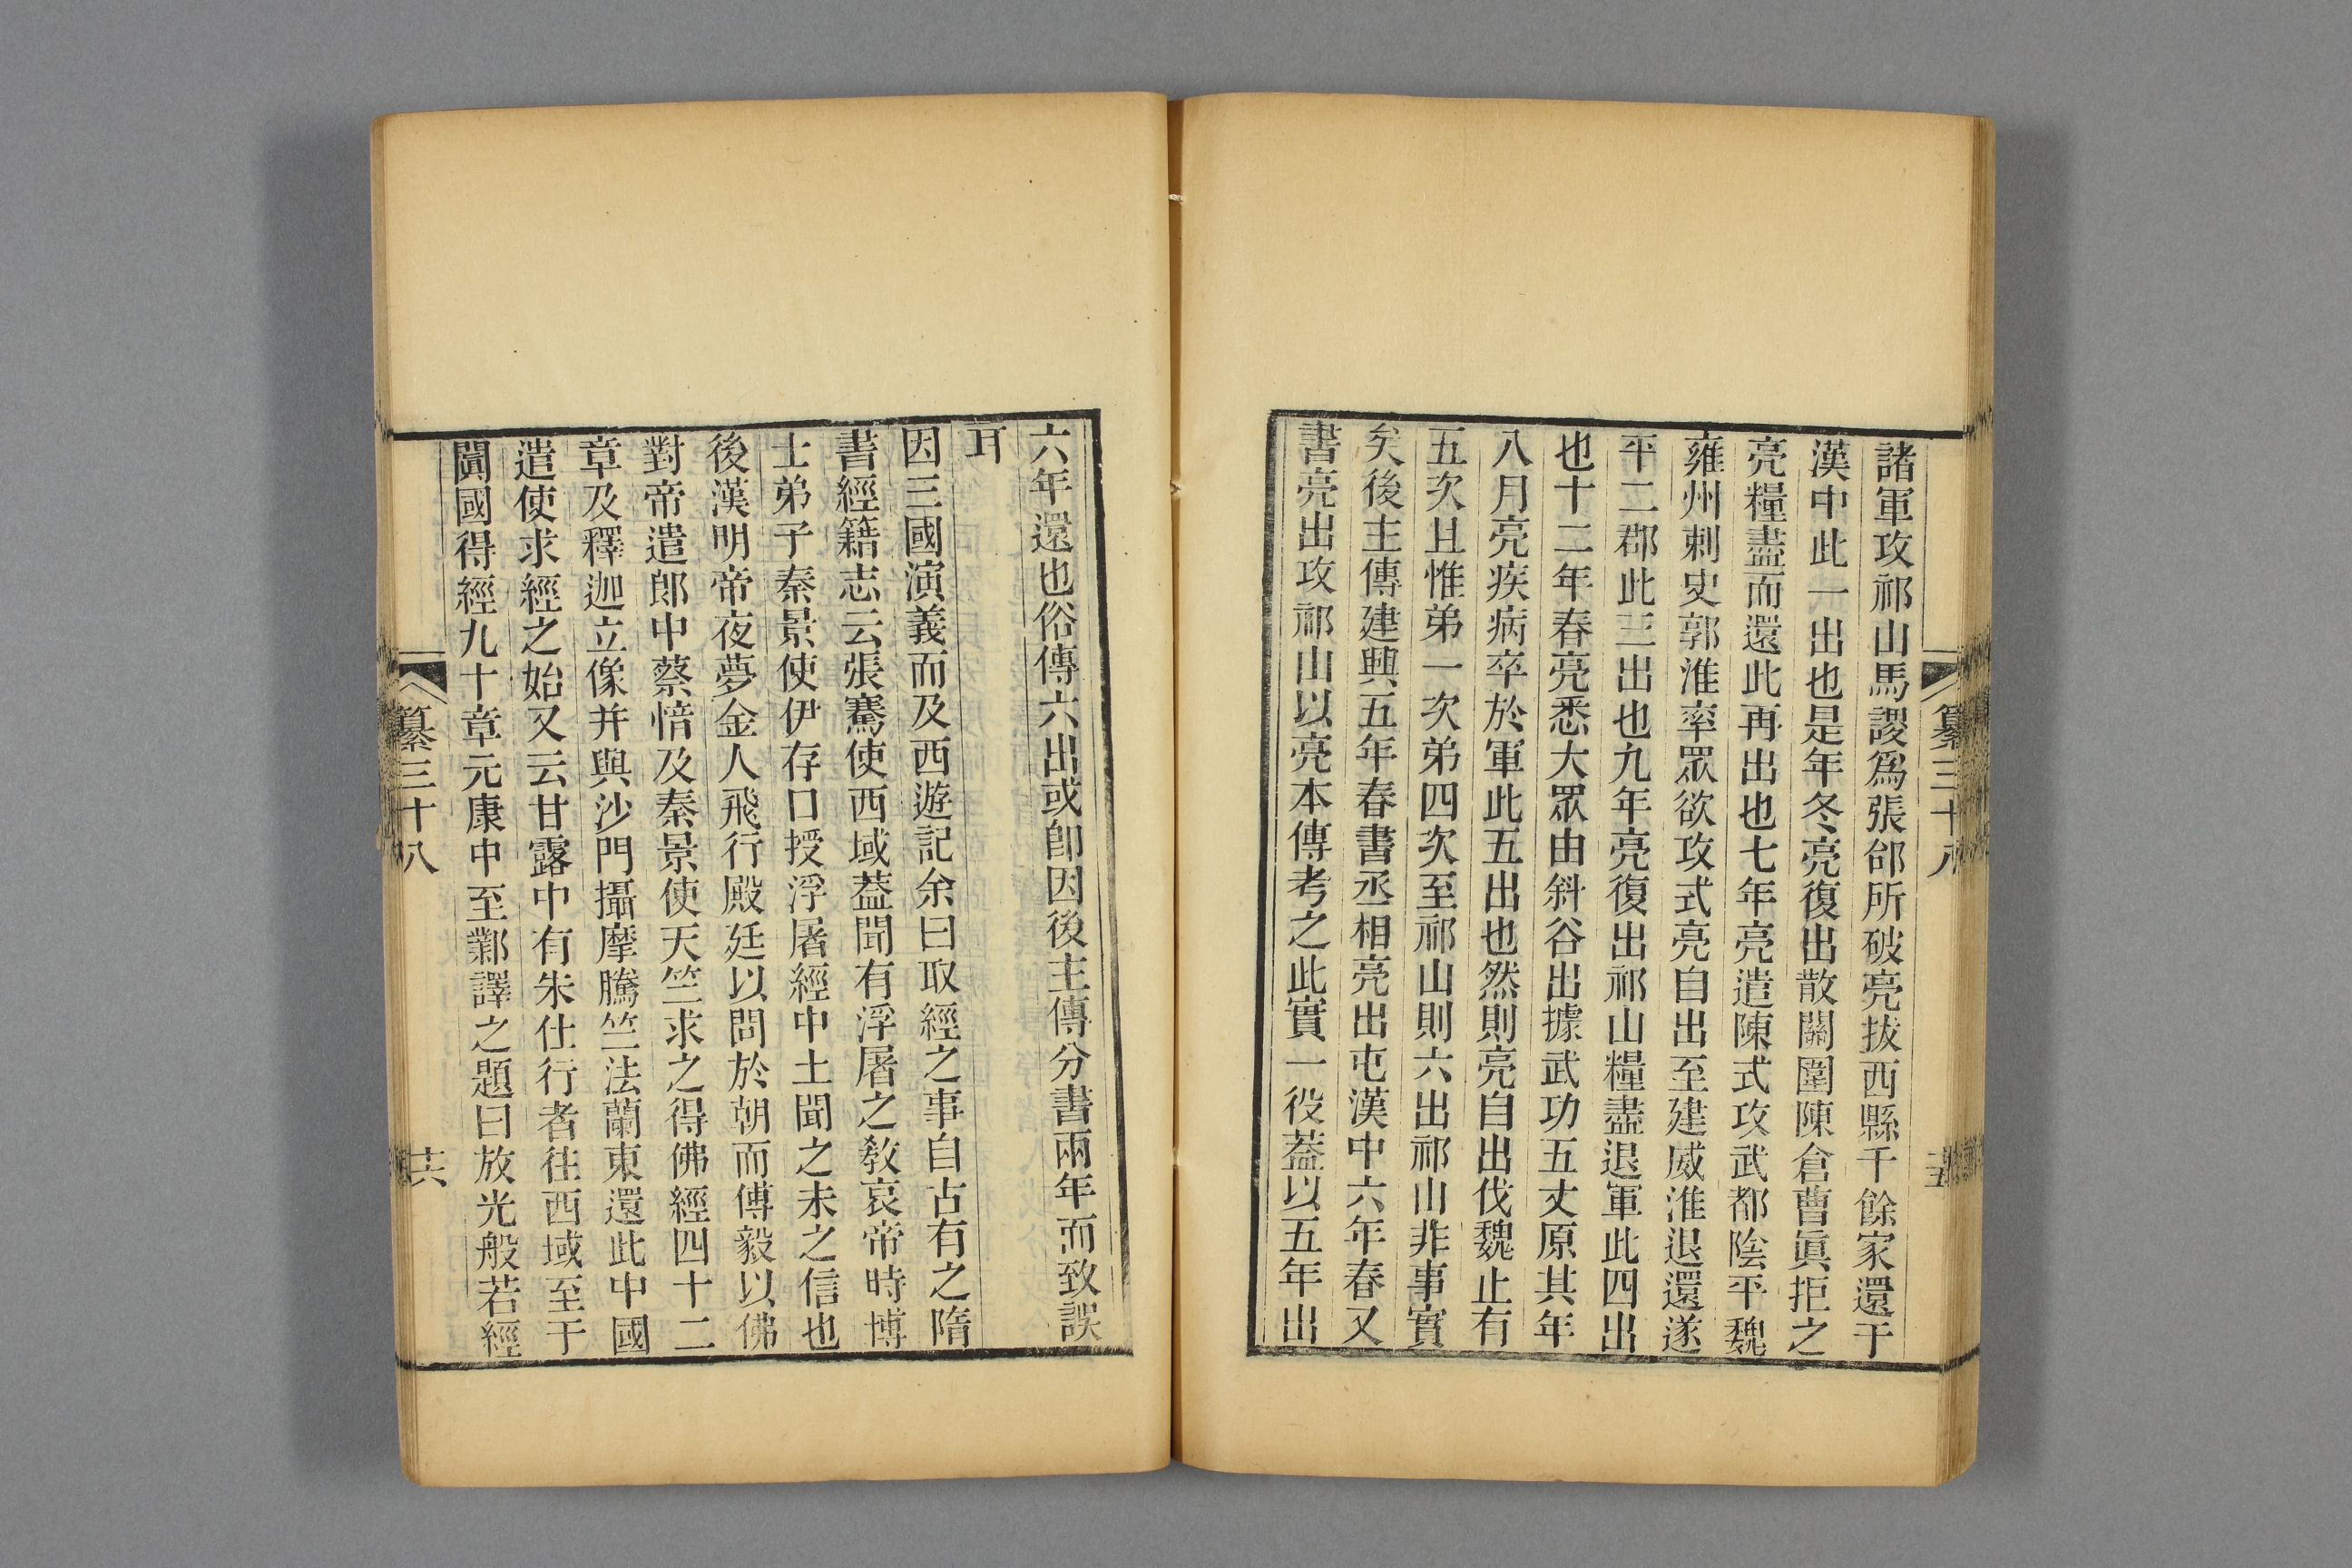 纂三十八
諸軍攻祁山馬謖爲張郃所破亮拔西縣千餘家還于
漢中此一出也是年冬亮復出散關圍陳倉曹眞拒之
亮糧盡而還此再出也七年亮遣陳式攻武都陰平魏
雍州刺史郭淮率眾欲攻式亮自出至建威淮退還遂
平二郡此三出也九年亮復出祁山糧盡退軍此四出
也十二年春亮悉大眾由斜谷出據武功五丈原其年
八月亮疾病卒於軍此五出也然則亮自出伐魏止有
五次且惟弟一次弟四次至祁山則六出祁山非事實
矣後主傳建興五年春書丞相亮出屯漢中六年春又
書亮出攻祁山以亮本傳考之此實一役葢以五年出
六年還也俗傳六出或卽因後主傳分書兩年而致誤
耳
因三國演義而及西遊記余曰取經之事自古有之隋
書經籍志云張騫使西域葢聞有浮屠之敎哀帝時博
士弟子秦景使伊存口授浮屠經中土聞之未之信也
後漢明帝夜夢金人飛行殿廷以問於朝而傅毅以佛
對帝遣郎中蔡愔及秦景使天竺求之得佛經四十二
章及釋迦立像并與沙門攝摩騰竺法蘭東還此中國
遣使求經之始又云甘露中有朱仕行者往西域至于
闐國得經九十章元康中至鄴譯之題曰放光般若經
纂三十八
十六